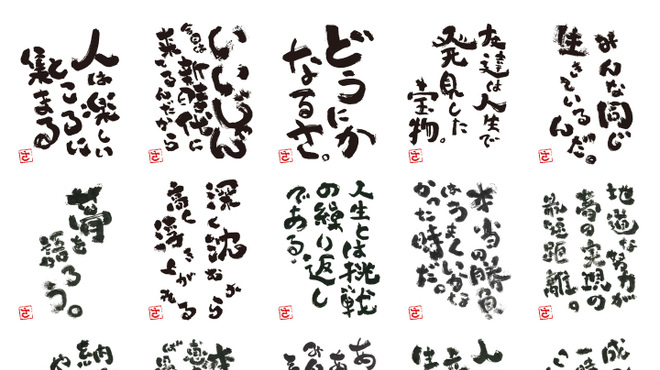 人は楽しい
ところに
集まる
いいじゃん
新時代に
来ているんだから
どうにか
なるさ。
友達は人生で
発見した
宝物。
みんな同じ
生きているんだ。
夢を
語ろう。
深く沈むから
高く浮き上がれる
人生とは挑戦
の繰り返し
である。
本当の勝負
はうまくいかな
かった時だ。
地道な努力が
夢の実現の
最短距離。
納
や